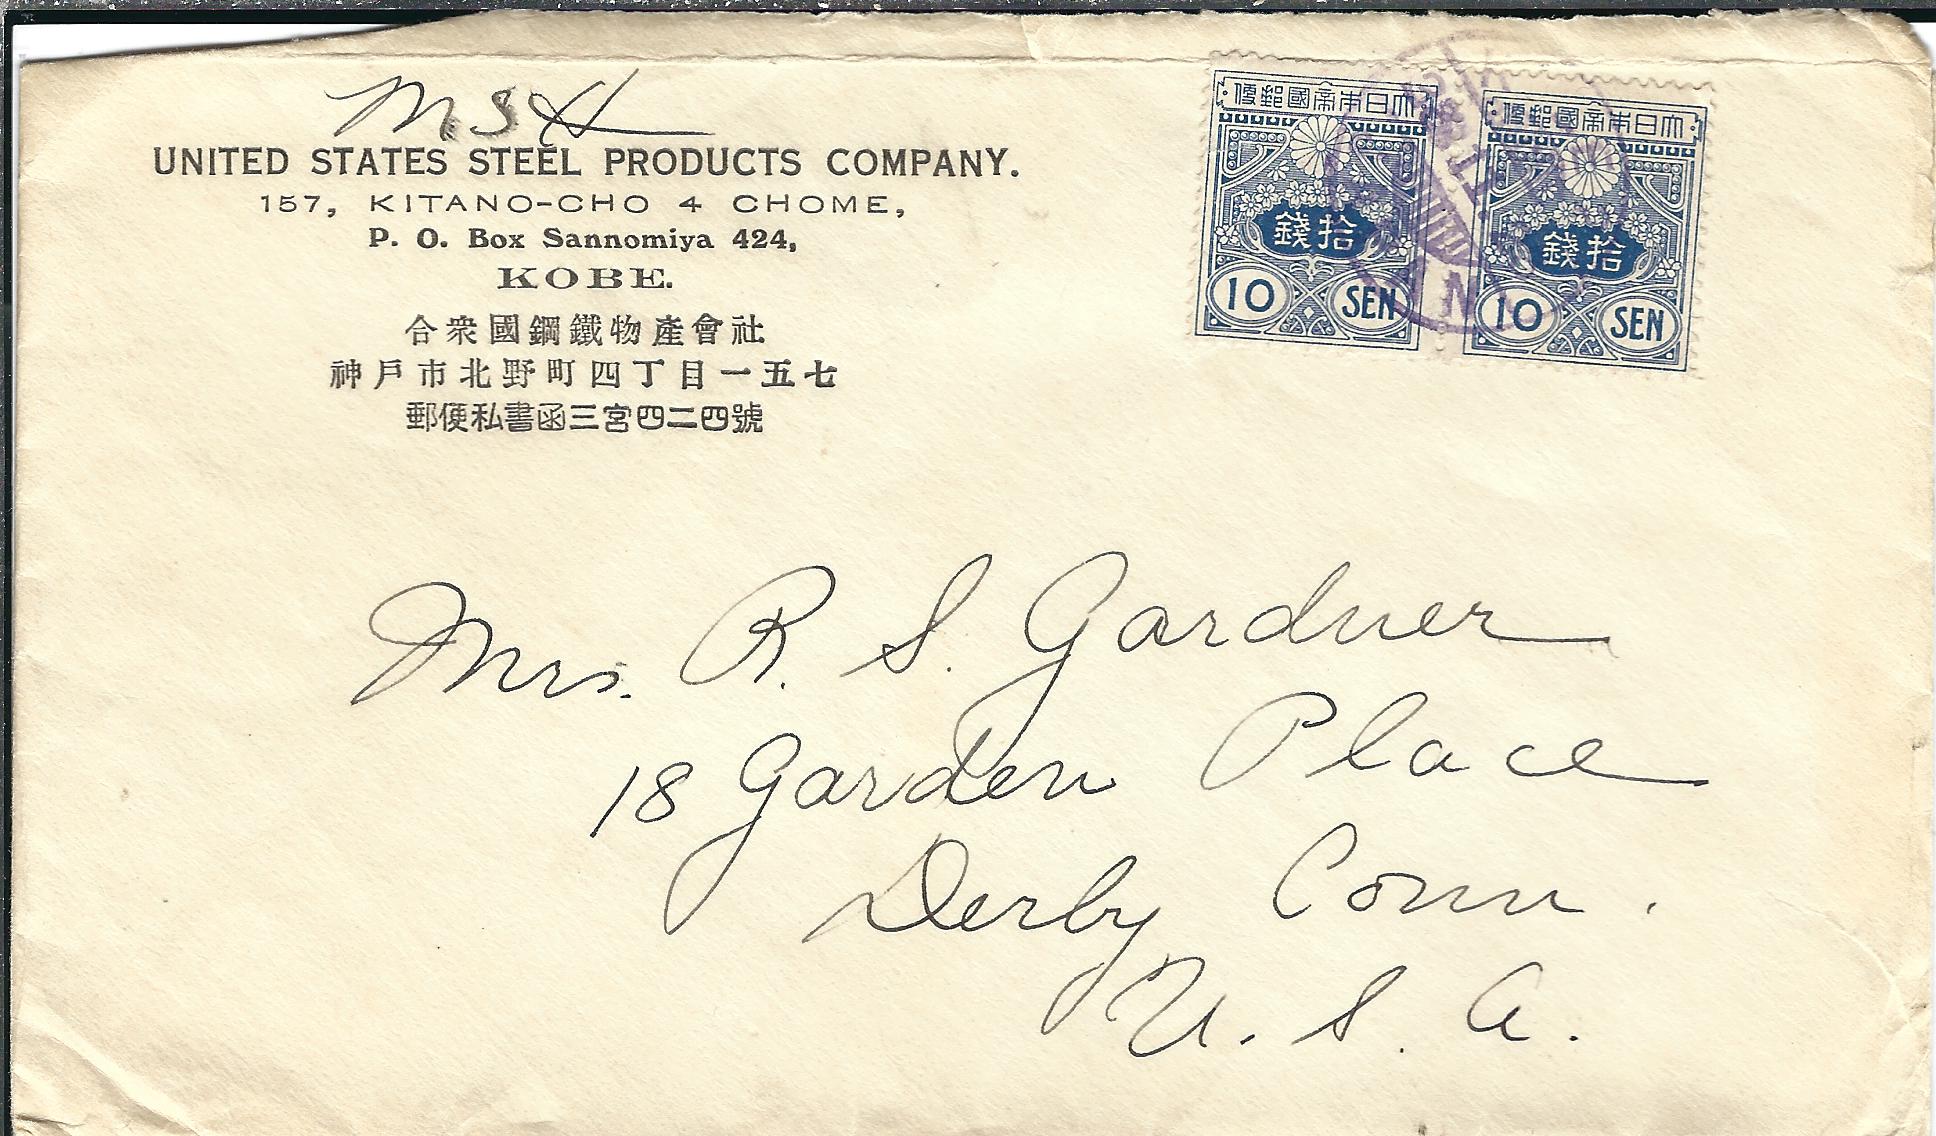 M S H
UNITED STATES STEEL PRODUCTS COMPANY.
157, KITANO-CHO 4 CHOME,
P. O. Box Sannomiya 424,
KOBE.
合衆國鋼鐵物產會社
神戸市北野町四丁目一五七
郵便私書函三宮四二四號
便郵國帝本日大
錢拾
10 SEN
便郵國帝本日大
錢拾
10 SEN
Mrs. R. S. Gardner
18 Garden Place
Derby Conn.
U. S. A.